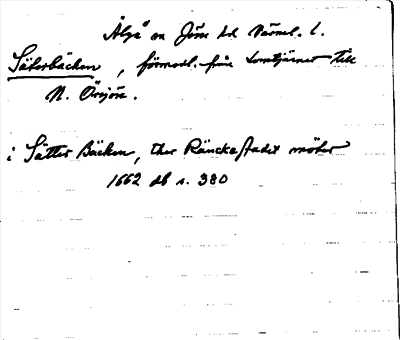 Älgå sn Jösse hd Värml. l.
Säterbäcken, förmodl. från Lomtjärnet till
N. Örsjön.
i Sätter Bäcken, ther Räncka stadet möter
1662 db s. 380